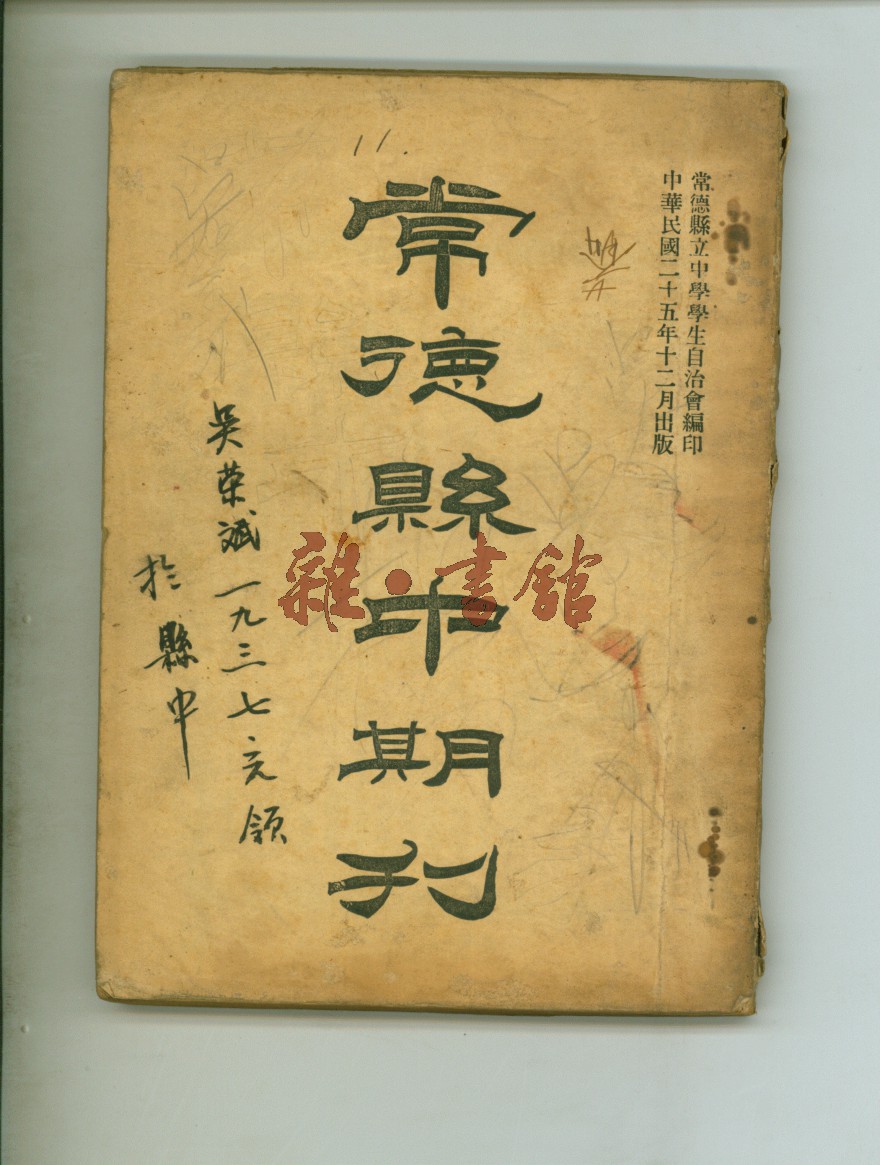 常德縣立中學學生自治會編印
中華民國二十五年十二月出版
11.
常德縣中期刊
吳荣斌一九三七、元領
於縣中
雜·書館